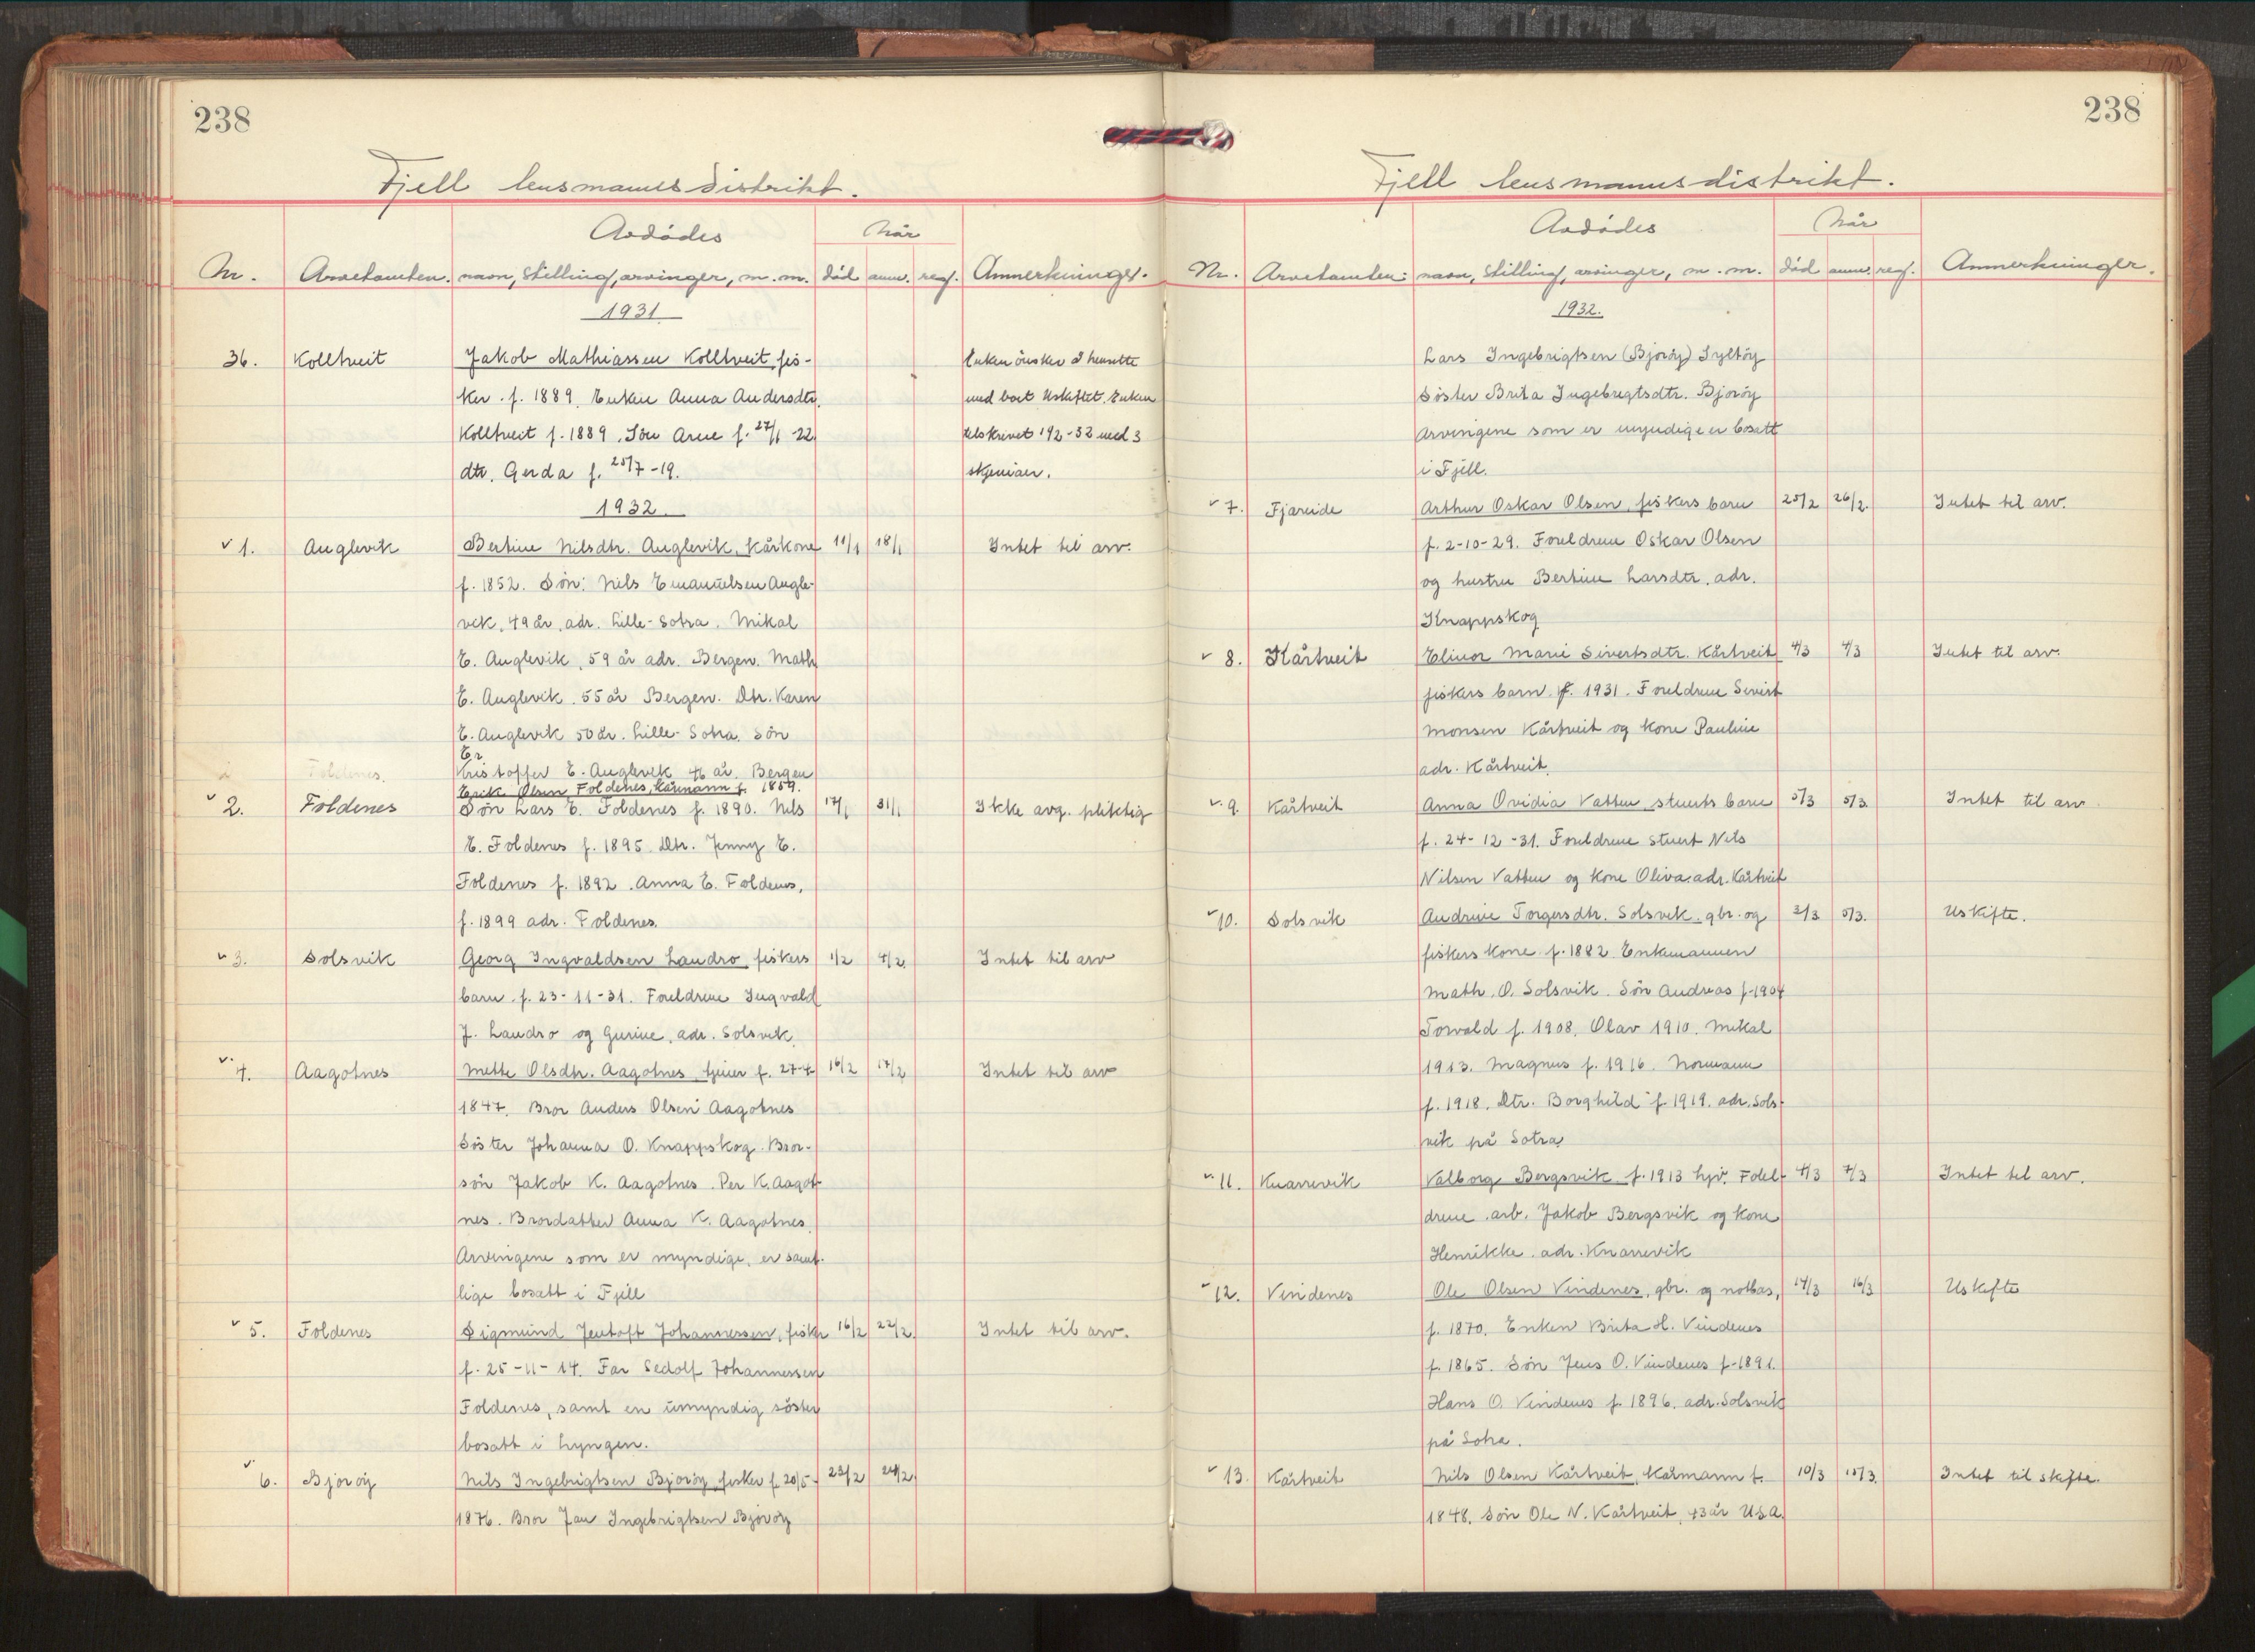 238
Fjell lensmannsdistrikt.
Nr. Arvetomten. Avdødes navn, stilling, arvinger, m.m. Når død anm. reg. Anmerkninger.
1931
36. Kolltveit Jakob Mathiassen Kolltveit, fis- Enken ønsker å hensitte
ker. f. 1889. Enken Anna Andersdtr. med boet Uskiftet. Enken
Kolltveit f. 1889. Søn Arne f. 27/1 22 192-32 med 3
dtr. Gerda f. 25/7-19.
1932
v 1. Anglevik Bertine Nilsdtr. Anglevik, kårkone 11/1 18/1 Intet til arv.
f. 1852. Søn: Nils Emanuelsen Angle-
vik, 49 år, adr. Lille-Sotra. Mikal
E. Anglevik, 59 år adr. Bergen. Math
E. Anglevik. 55 år Bergen. Dtr. Karen
E. Anglevik 50 år. Lille-Sotra. Søn
Kristoffer E. Anglevik år. Bergen
Erik Olsen Foldenes, kårmann f. 1859.
v 2. Foldenes Søn Lars E. Foldenes f. 1890. Nils 17/1 31/1 Ikke avg. pliktig
E. Foldenes f. 1895. Dtr. Jenny E.
Foldenes f. 1892. Anna E. Foldenes,
f. 1899 adr. Foldenes.
v 3. Solsvik Georg Ingvaldsen Landro, fiskers 1/2 4/2. Intet til arv
barn. f. 23-11-31. Foreldrene Ingvald
J. Landro og Gurine, adr. Solsvik.
v. 4. Aagotnes Mette Olsdtr. Aagotnes f. 27-4 16/2 17/2 Intet til arv
1847. Bror Anders Olsen Aagotnes
Søster Johanna O. Knappskog. Bror-
søn Jakob K. Aagotnes. Per K. Aagot-
nes. Brordatter Anna K. Aagotnes.
Arvingene som er myndige, er samt-
lige bosatt i Fjell
v 5. Foldenes Sigmund Jentoft Johannessen, fisker 16/2 22/2. Intet til arv.
f. 25-11-14. Far Sedolf Johannessen
Foldenes, samt en umyndig søster
bosatt i Lyngen.
v. 6. Bjorøy Nils Ingebrigtsen Bjorøy, fisker f. 20/5- 23/2 24/2
1876. Bror Jan Ingebrigtsen Bjorøy
238
Fjell lensmannsdistrikt.
Nr. Arvetomten. Avdødes navn, stilling, arvinger, m.m. Når død anm. reg. Anmerkninger.
1932.
Lars Ingebrigtsen (Bjorøy) Syltøy
Søster Brita Ingebrigtsdtr. Bjorøy
Arvingene som er myndige er bosatt
i Fjell.
v 7. Fjæreide Arthur Oskar Olsen, fiskers barn 25/2 26/2. Intet til arv.
f. 2-10-29. Foreldrene Oskar Olsen
og hustru Bertine Larsdtr. adr.
Knappskog
v 8. Kårtveit Elinor Marie Sivertsdtr. Kårtveit 4/3 4/3 Intet til arv.
fiskers barn. f. 1931. Foreldrene Sivert
Monsen Kårtveit og kone Pauline
adr. Kårtveit.
v. 9. Kårtveit Anna Ovidia Vatten, stuerts barn 5/3 5/3. Intet til arv
f. 24-12-31. Foreldrene stuert Nils
Nilsen Vatten og kone Oliva. adr. Kårtveit
v 10. Solsvik Andrine Torgersdtr. Solsvik. gbr. og 3/3 5/3. Uskifte.
fiskers kone f. 1882 Enkemannen
Math. O. Solsvik. Søn Andreas f. 1904
Torvald f. 1908, Olav 1910. Mikal
1913. Magnus f. 1916. Normann
f. 1918. Dtr. Borghild f. 1919. adr. Sols-
vik på Sotra
v. 11. Knarrevik Valborg Bergsvik f. 1913 hjv. Forel- 4/3 7/3 Intet til arv.
drene arb. Jakob Bergsvik og kone
Henrikke. adr. Knarrevik
v 12. Vindenes Ole Olsen Vindenes, gbr. og notbas, 14/3 16/3 Uskifte
f. 1870. Enken Brita H. Vindenes
f. 1865. Søn Jens O. Vindenes f. 1891.
Hans O. Vindenes f. 1896. adr. Solsvik
på Sotra.
v 13. Kårtveit Nils Olsen Kårtveit, kårmann f. 10/3 15/3. Intet til skifte.
1848. Søn Ole N. Kårtveit, 43 år U.S.A.